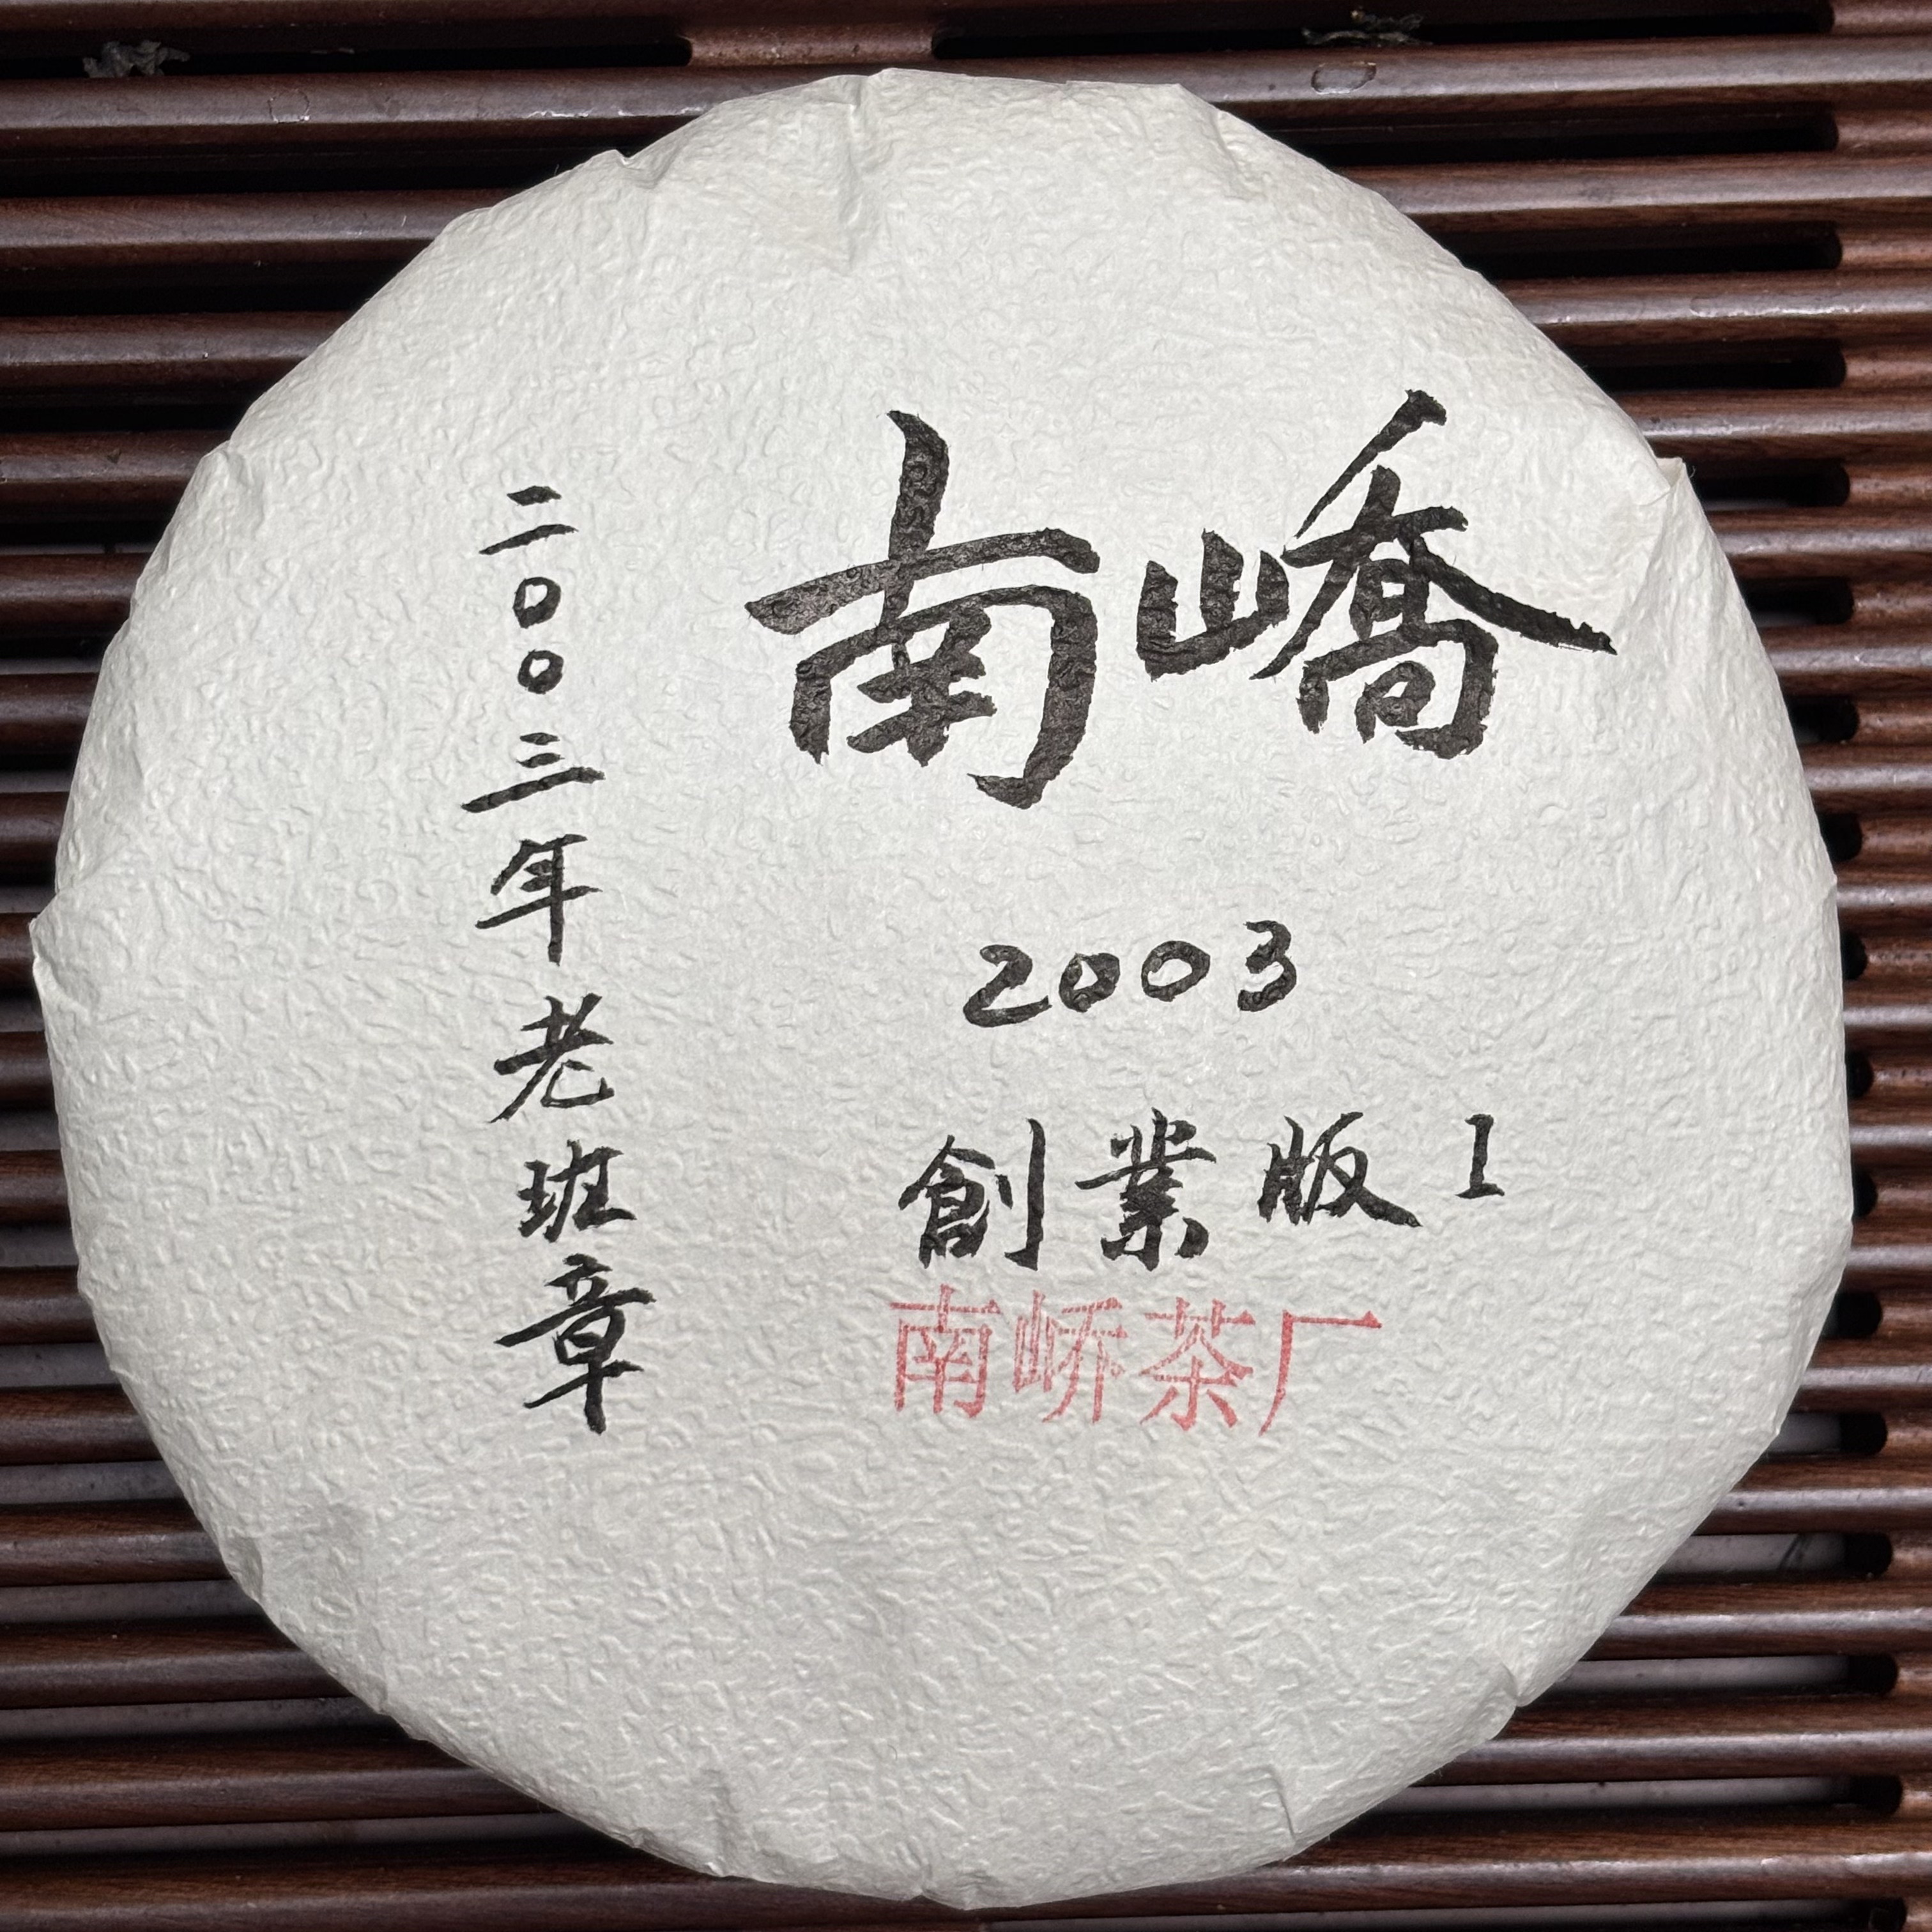 南嶠
2003
創業版 I
南峤茶厂
二00三年老班章